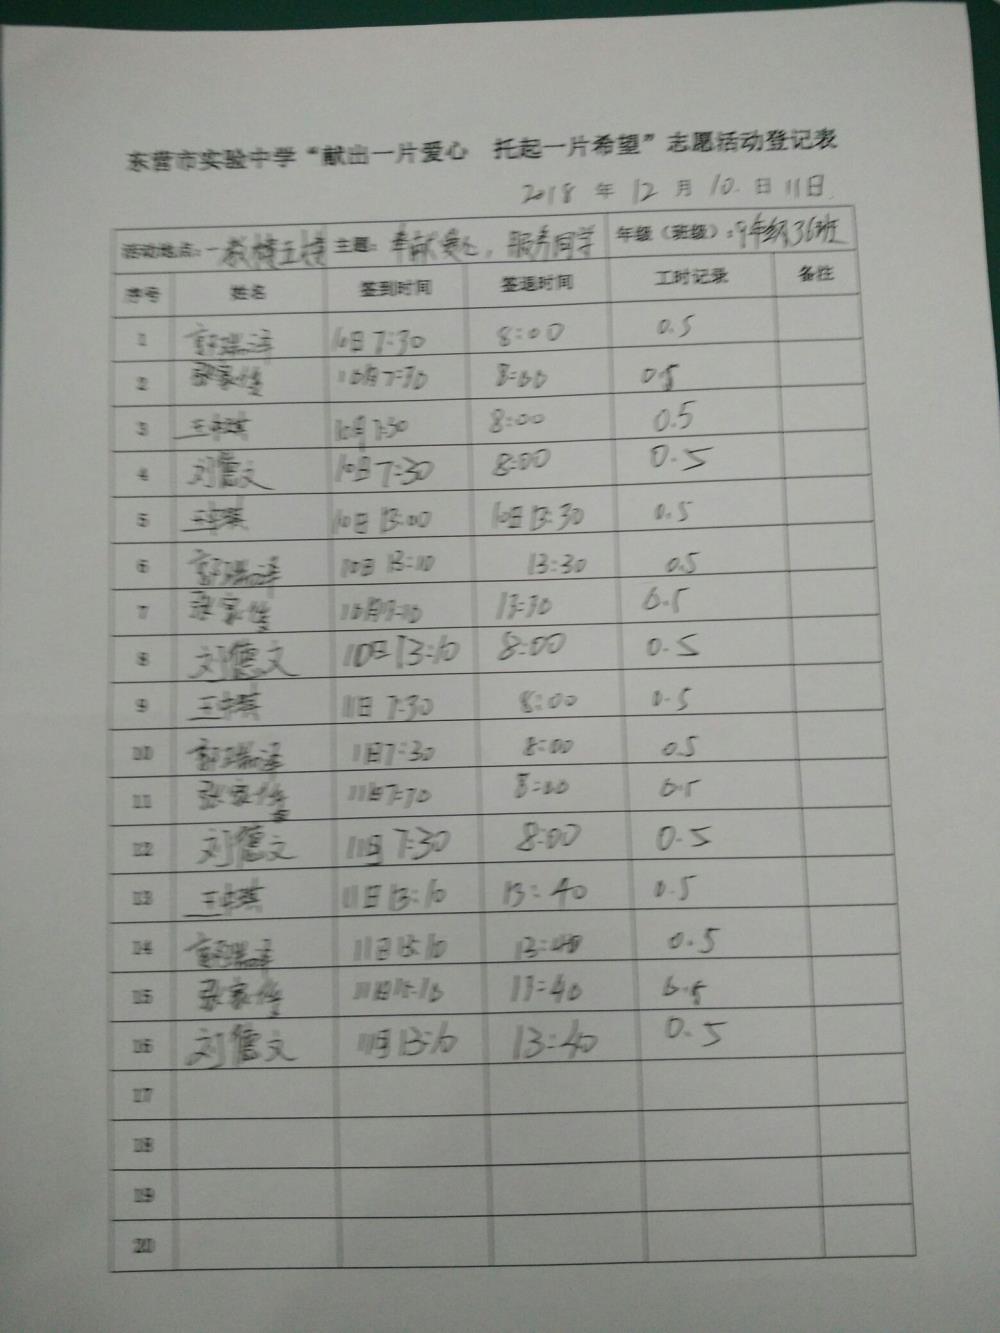 东营市实验中学“献出一片爱心 托起一片希望”志愿活动登记表
2018 年 12 月 10. 日 11日
活动地点：一教楼主楼 主题：奉献爱心，服务同学 年级（班级）：9年级36班
序号 姓名 签到时间 签退时间 工时记录 备注
1 郭瑞泽 10日7:30 8:00 0.5
2 张家 10日7:30 8:00 0.5
3 王 10日7:30 8:00 0.5
4 刘德文 10日7:30 8:00 0.5
5 王 10日13:00 10日13:30 0.5
6 郭瑞泽 10日13:10 13:30 0.5
7 张家 13:30 0.5
8 刘德文 10日13:10 8:00 0.5
9 王 11日7:30 8:00 0.5
10 郭瑞泽 11日7:30 8:00 0.5
11 张家 11日7:30 8:00 0.5
12 刘德文 11日7:30 8:00 0.5
13 王 11日13:10 13:40 0.5
14 郭瑞泽 13:40 0.5
15 张家 13:40 0.5
16 刘德文 11日13:10 13:40 0.5
17
18
19
20